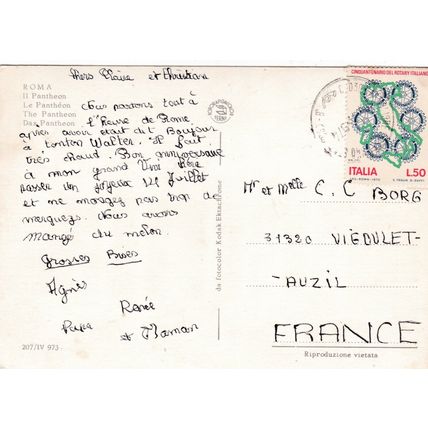 Chers Claire et Christian
ROMA
Il Pantheon
Le Pantéon
The Pantheon
Das Pantheon
Nous passons tout à
l'heure de Rome
après avoir était dit Bonjour
à tonton Walter. Il fait
très chaud. Bon anniversaire
à mon grand
passée un joyeux 14 Juillet
et ne mangez pas trop de
merguez. Nous avons
mangé du melon.
Grosses Bises
Agnès
Renée
Papa et Maman
207/IV 973
da fotocolor Kodak Ektachrome
CINQUANTENARIO DEL ROTARY ITALIANO
ITALIA L.50
Mr et Melle C. C BORG
31320 VIEOULET-
-AUZIL
FRANCE
Riproduzione vietata